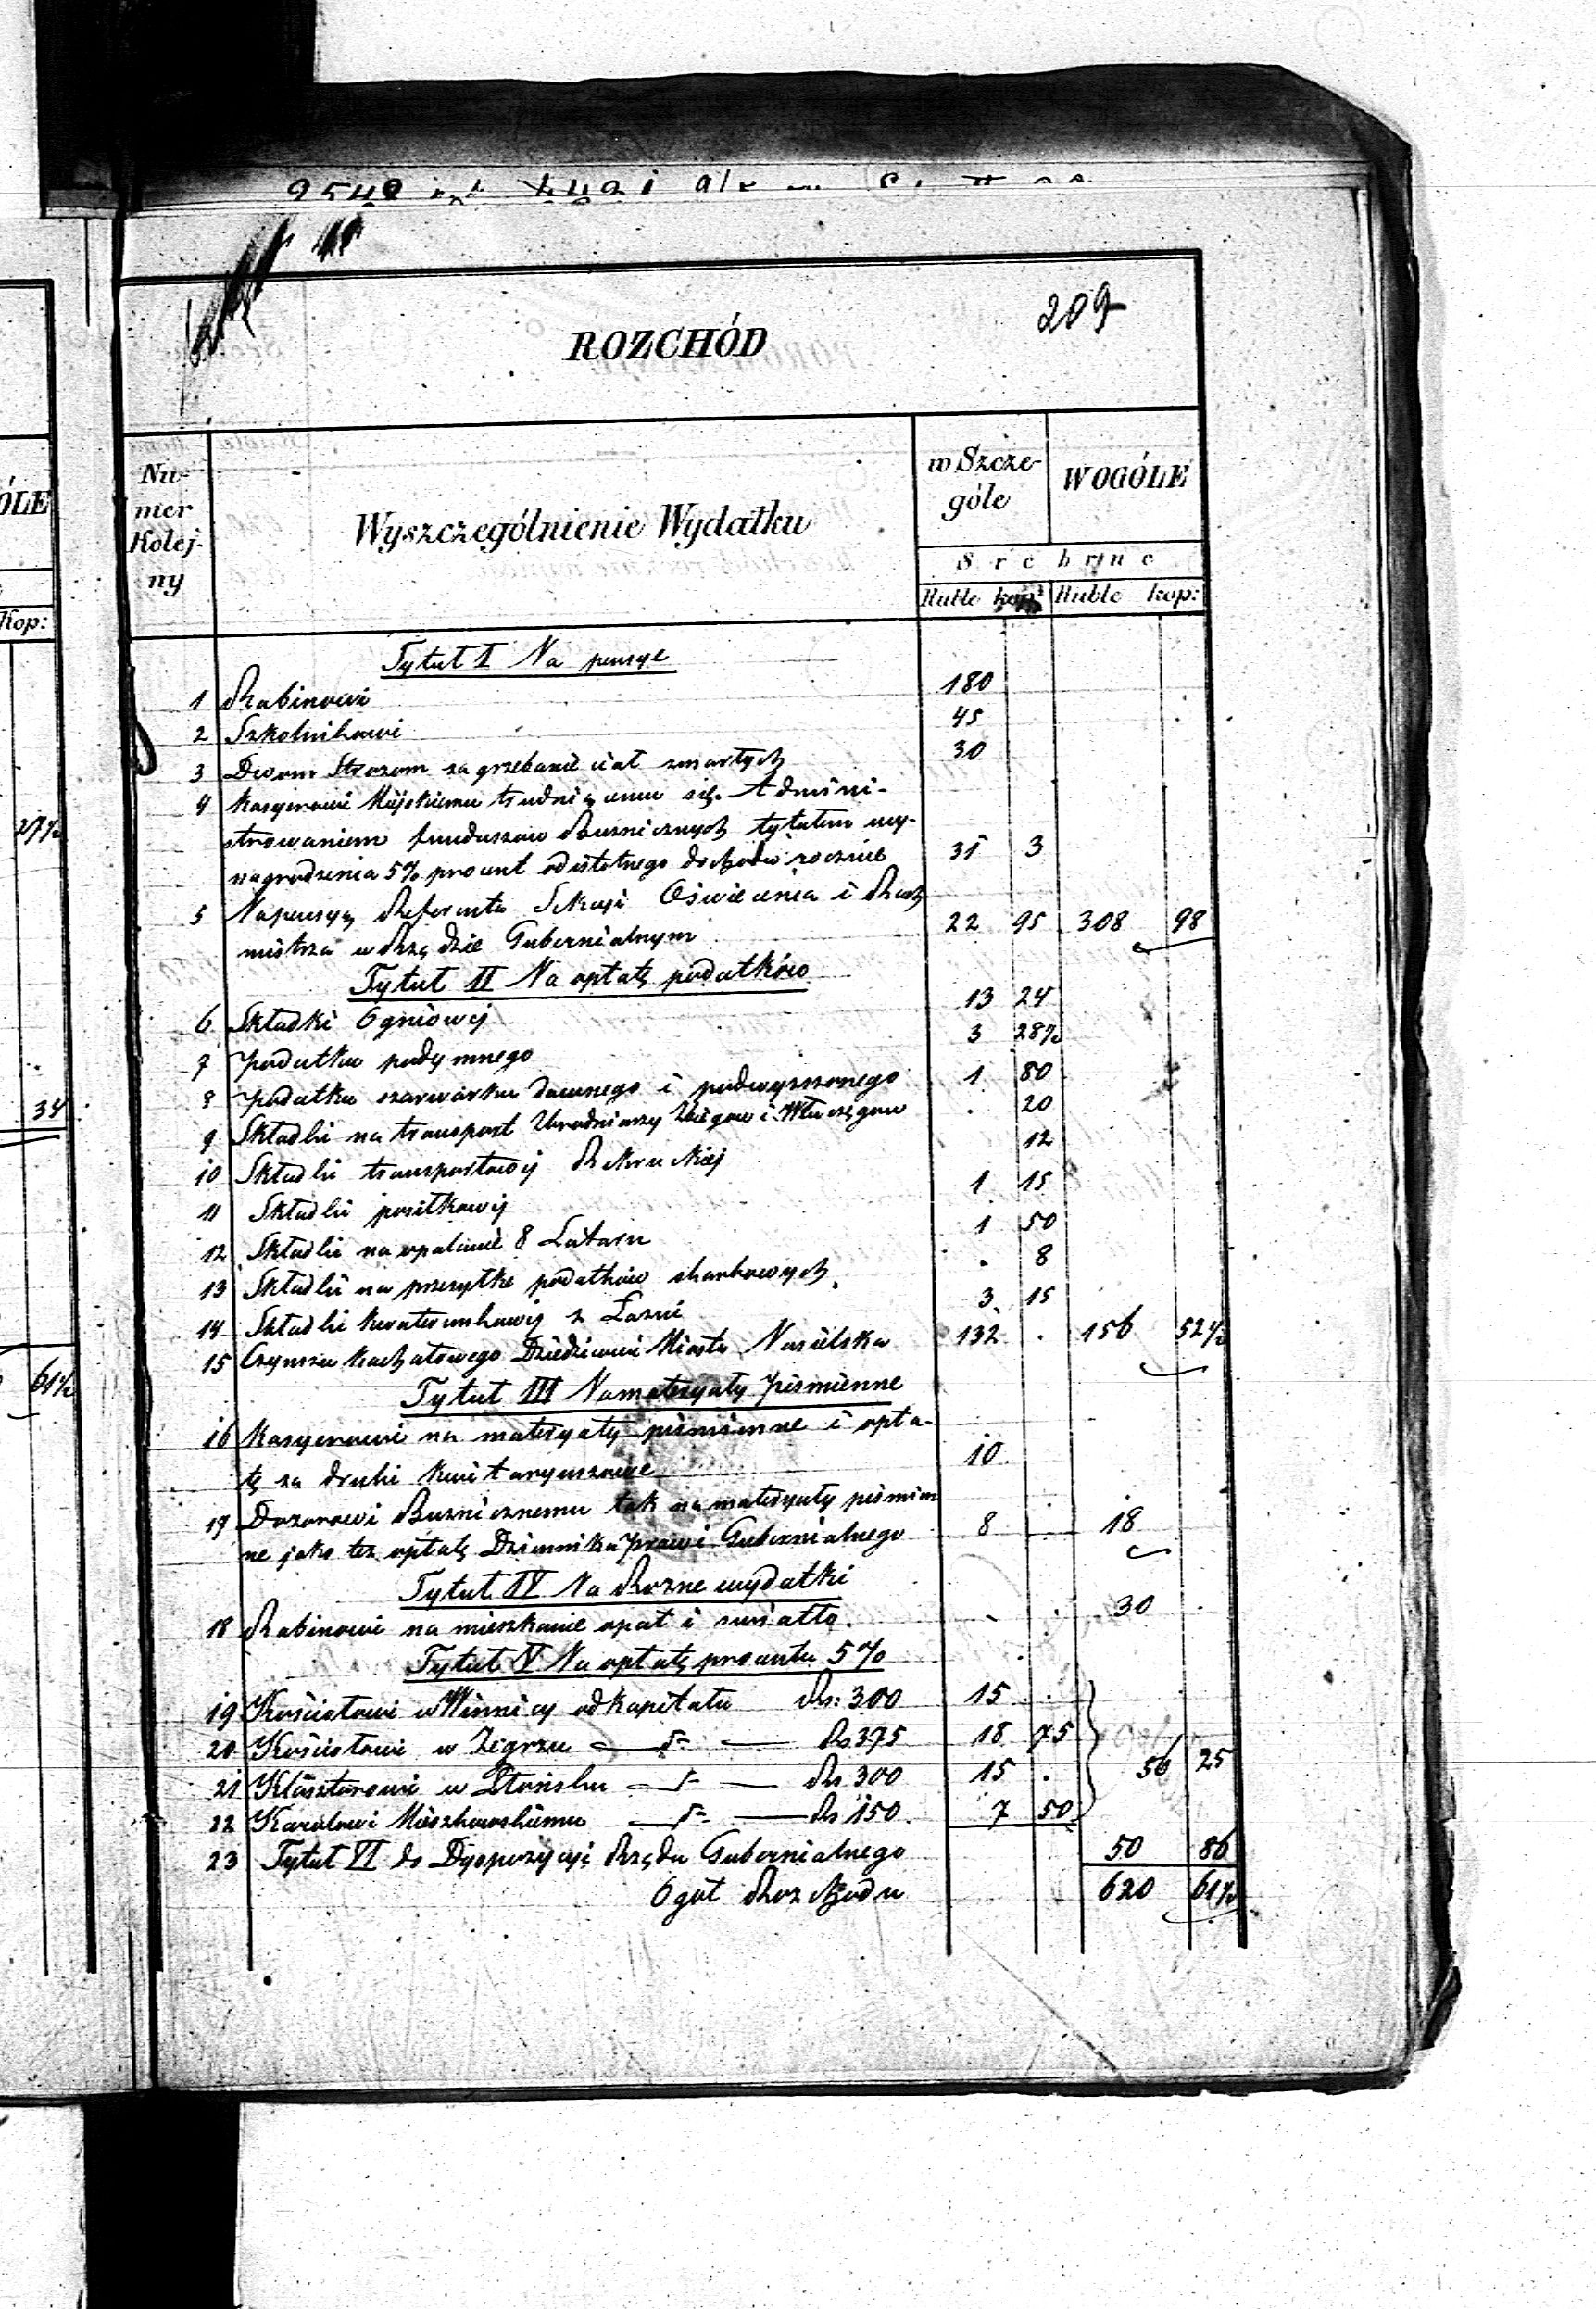 209
ROZCHÓD
Nu-
mer
Kolej-
ny
Wyszczególnienie Wydatku
w Szcze-
góle
W OGÓLE
Srebrne
Ruble kop: Ruble kop:
ÓLE
Kop:
27½
34
61½
Tytuł I Na pensye
1 Rabinowi 180
2 Szkolnikowi 45
3 Dwom Stróżom za grzebanie ciał zmarłych 30
4 Kasyerowi Miejskiemu trudniącemu się Admini-
strowaniem funduszów Bużnicznych tytułem wy-
nagrodzenia 5% procent od istotnego dochodu rocznie 31 3
5 Na pensyą Referenta Sekcyi Oświecenia i Rach
mistrza w Rządzie Gubernialnym 22 95 308 98
Tytuł II Na opłatę podatków
6 Składki Ogniowej 13 24
7 Podatku podymnego 3 28½
8 Podatku szarwarku dawnego i podwyższonego 1 80
9 Składki na transport Zbrodniarzy Zbiegów i Włóczęgów . 20
10 Składki transportowej Rekruckiej 12
11 Składki posiłkowej 1 15
12 Składki na opalanie 8 Latarn 1 50
13 Składki na przesyłkę podatków skarbowych . 8
14 Składki kwaterunkowej z Łazni 3 15
15 Czynszu kachałowego Dziedzicowi Miasta Nasielska 132 . 156 52½
Tytuł III Na materyały piśmienne
16 Kasyerowi na materyały piśmienne i opła-
tę za druki kwitaryuszowe 10
17 Dozorowi Bużnicznemu tak na materyały piśmien
ne jako też opłatę Dziennika Praw i Gubernialnego 8 18
Tytuł IV Na Rożne wydatki
18 Rabinowi na mieszkanie opał i swiatło . 30
Tytuł V Na opłatę procentu 5%
19 Kościołowi w Winnicy od kapitału Rs: 300 15 .
20 Kościołowi w Zegrzu — d° — Rs 375 18 75
21 Klasztorowi w — d° — Rs 300 15 . 56 25
22 Karolowi Mieszkowskiemu — d° — Rs 150 7 50
23 Tytuł VI do Dyspozycyi Rządu Gubernialnego 50 86
Ogół Rozchodu 620 61½